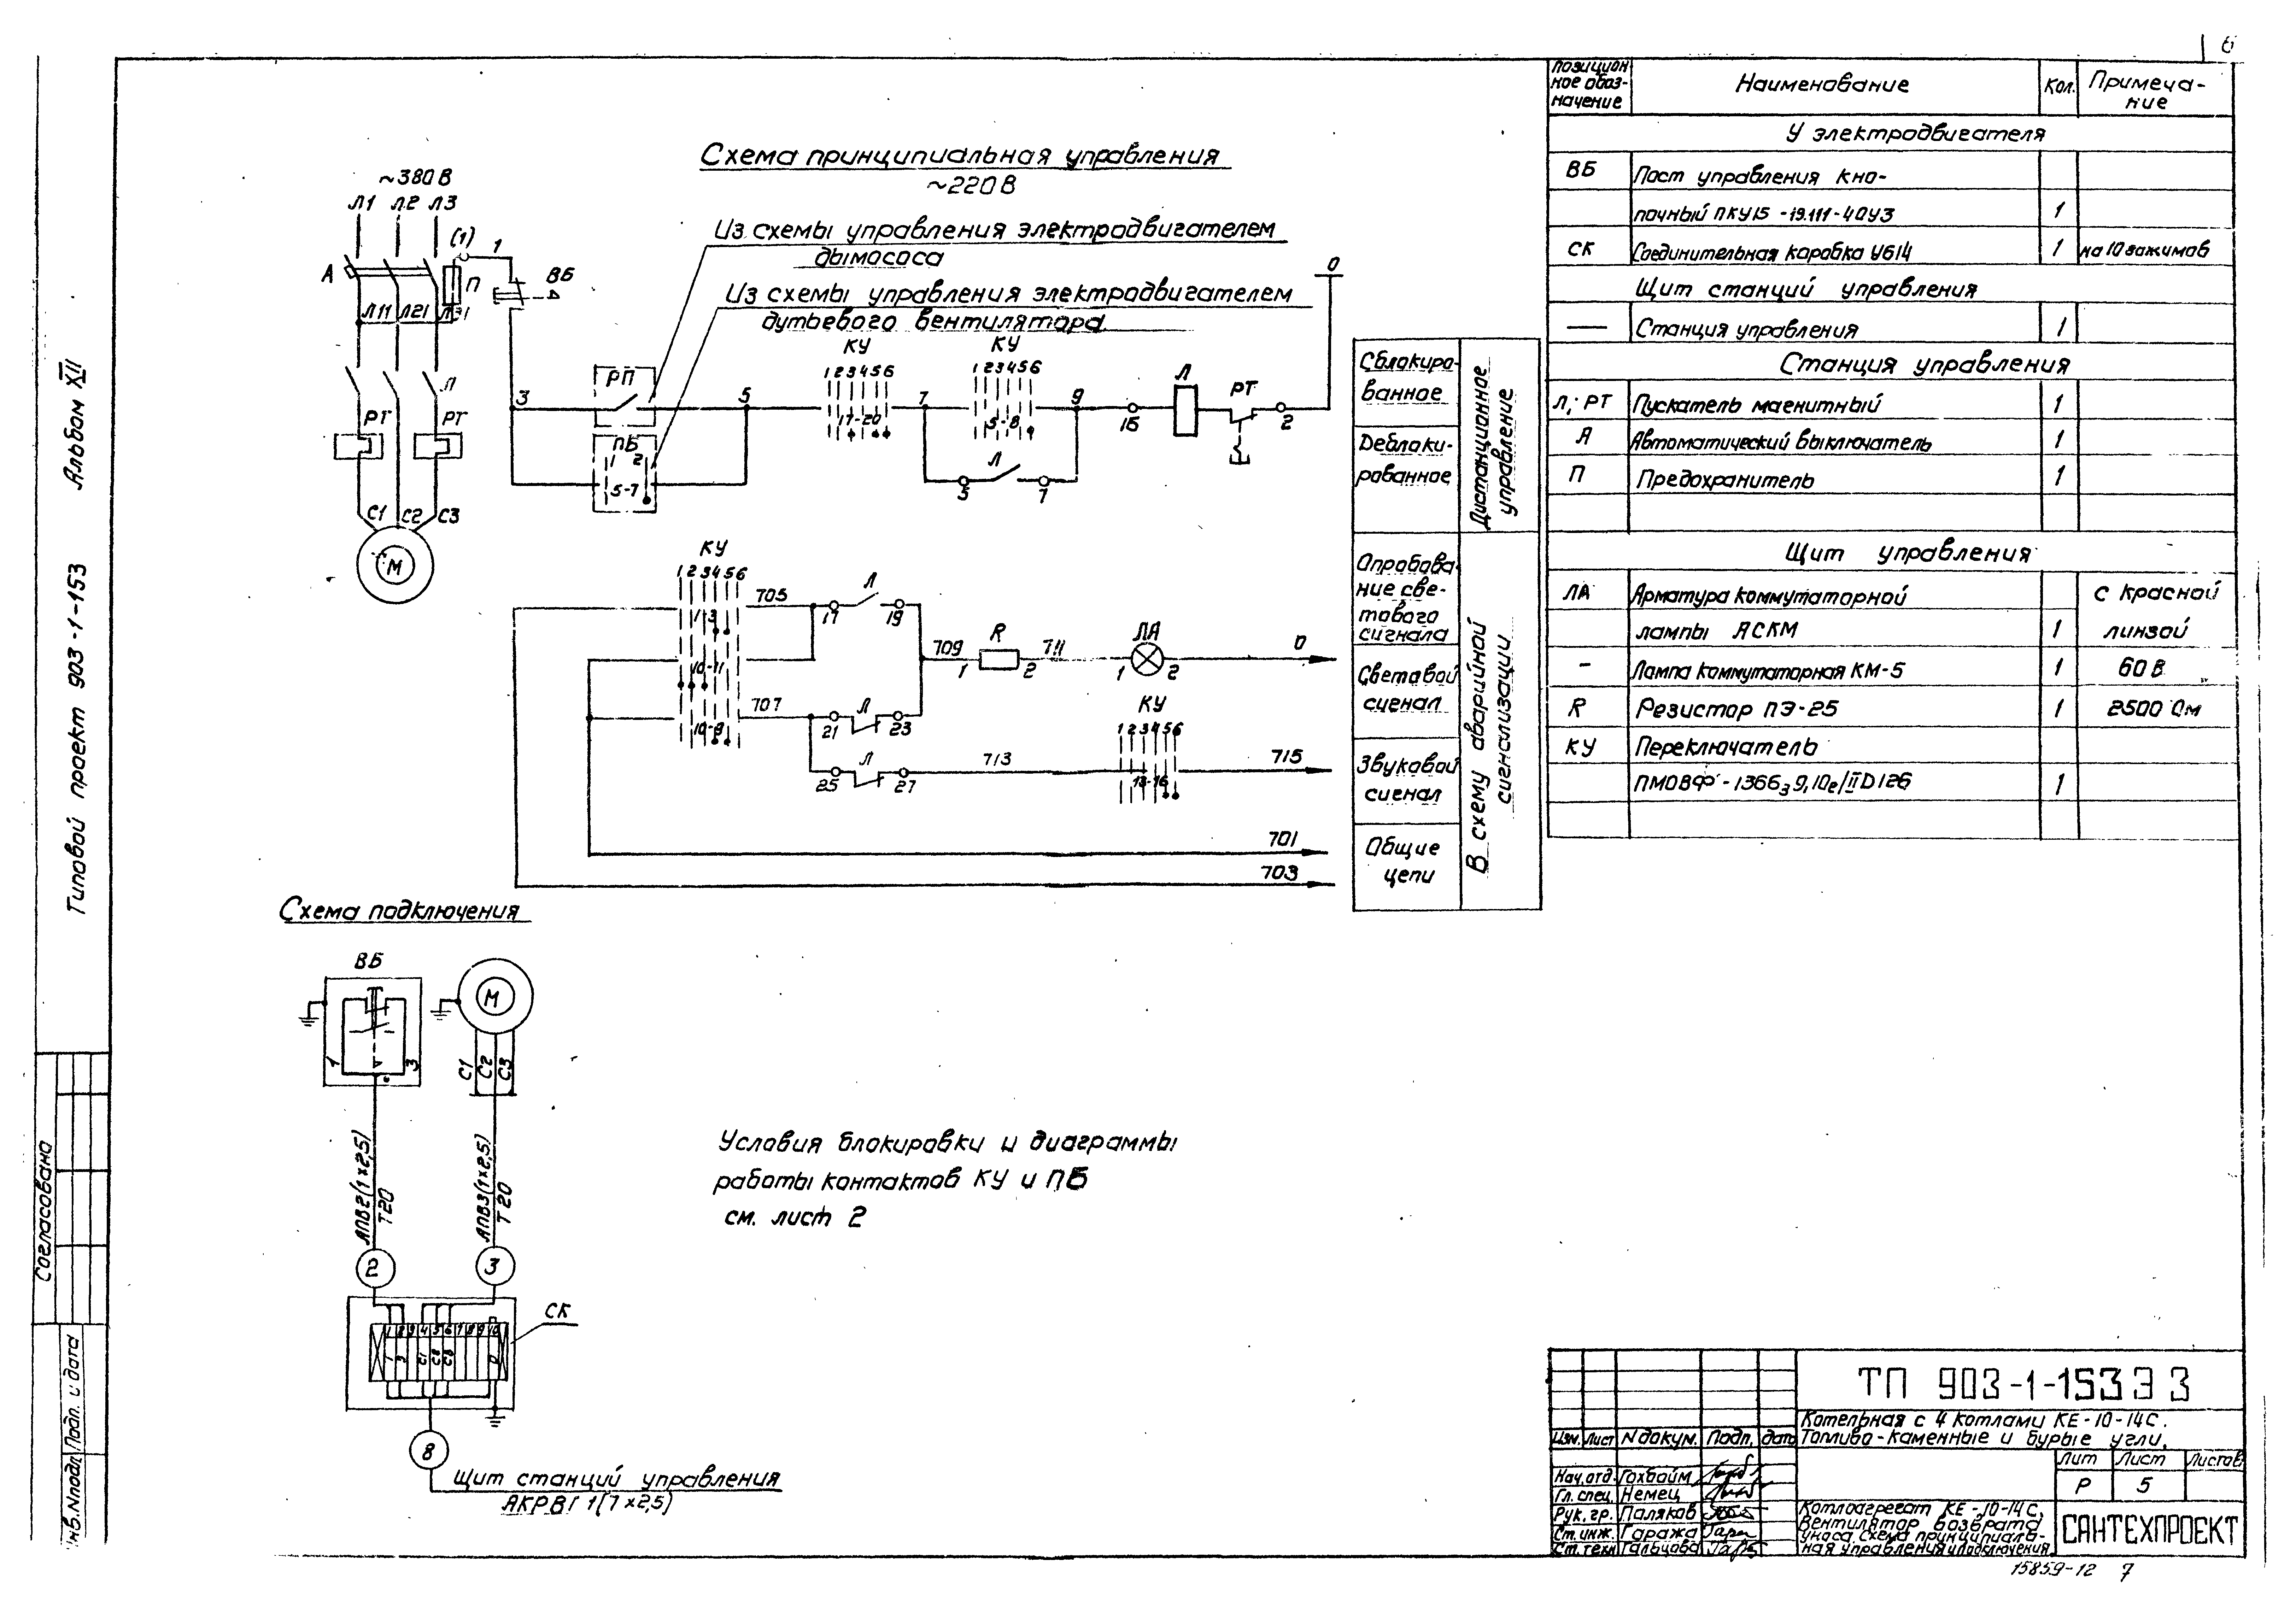 6
Типовой проект 903-1-153 Альбом XII
Согласовано
Подп. и дата
Схема принципиальная управления
~220В
~380В
Л1 Л2 Л3
(1) 1
А
П
ВБ
Л11 Л21 Л31
Л
РТ РТ
С1 С2 С3
М
Из схемы управления электродвигателем
дымососа
Из схемы управления электродвигателем
дутьевого вентилятора
КУ КУ
1 2 3 4 5 6 1 2 3 4 5 6
РП
3 5 7 9 15 Л РТ 2 0
17-20 5-8
ПБ
1 2
5-7
Л
5 7
КУ
1 2 3 4 5 6
705 17 Л 19
1-3
10-11
709 1 R 2 711 1 ЛА 2 0
707 21 Л 23
10-9
КУ
1 2 3 4 5 6
25 Л 27 713 13-16 715
701
703
Сблокиро-
ванное
Деблоки-
рованное
Дистанционное
управление
Опробова-
ние све-
тового
сигнала
Световой
сигнал
Звуковой
сигнал
Общие
цепи
В схему аварийной
сигнализации
Схема подключения
ВБ
М
1 3
С1 С2 С3
АПВ2(1×2,5)
Т20
АПВ3(1×2,5)
Т20
2 3
СК
1 2 3 4 5 6 7 8 9 10
8
Щит станций управления
АКРВГ 1(7×2,5)
Условия блокировки и диаграммы
работы контактов КУ и ПБ
см. лист 2
Позицион
ное обоз-
начение
Наименование
Кол.
Примеча-
ние
У электродвигателя
ВБ Пост управления кно-
почный ПКУ15-19.111-40У3 1
СК Соединительная коробка У614 1 на 10 зажимов
Щит станций управления
— Станция управления 1
Станция управления
Л; РТ Пускатель магнитный 1
А Автоматический выключатель 1
П Предохранитель 1
Щит управления
ЛА Арматура коммутаторной с красной
лампы АСКМ 1 линзой
- Лампа коммутаторная КМ-5 1 60 В
R Резистор ПЭ-25 1 2500 Ом
КУ Переключатель
1
ТП 903-1-153 Э3
Котельная с 4 котлами КЕ-10-14С.
Топливо-каменные и бурые угли.
Изм. Лист N докум. Подп. дата
Лит Лист Листов
Р 5
Нач.отд. Гохбойм
Гл. спец. Немец
Рук. гр. Поляков
Ст. инж. Гаража
Ст. техн Гальцова
Котлоагрегат КЕ-10-14С.
Вентилятор возврата
уноса. Схема принципиаль-
ная управления и подключения
САНТЕХПРОЕКТ
15859-12 7